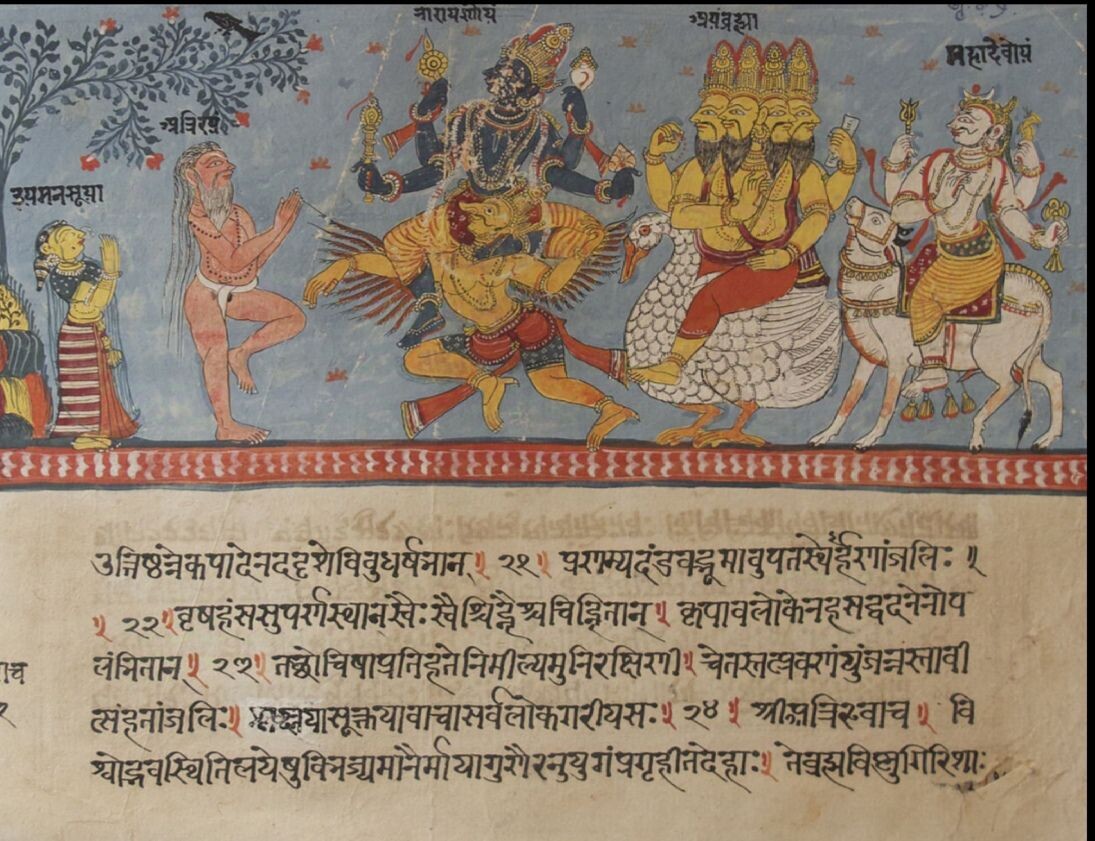 नारायणोयं
अयंब्रह्मा
महादेवोयं
अत्रिरयं
इयमनसूया
उत्तिष्ठन्नेकपादेनददृशेविबुधर्षभान् ॥ २१ ॥ प्रणम्यदंडवद्भूमावुपतस्थेर्हणांजलिः ॥
॥ २२ ॥ वृषहंससुपर्णस्थान्स्वैः स्वैश्चिह्नैश्चचिह्नितान् ॥ कृपावलोकेनहसद्वदनेनोप
लंभितान् ॥ २३ ॥ तच्छोचिषाप्रतिहतेनिमील्यमुनिरक्षिणी ॥ चेतस्तत्प्रवणंयुंजन्नस्तावी
त्संहतांजलिः ॥ सूक्तयावाचासर्वलोकगरीयसः ॥ २४ ॥ श्रीअत्रिरुवाच ॥ वि
श्वोद्भवस्थितिलयेषुविभज्यमानैर्मायागुणैरनुयुगंप्रगृहीतदेहाः ॥ तेब्रह्मविष्णुगिरिशाः